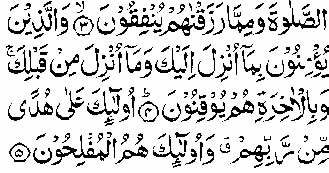 الصَّلٰوةَ وَمِمَّا رَزَقْنٰهُمْ يُنْفِقُوْنَ ﴿٣﴾ وَالَّذِيْنَ
يُؤْمِنُوْنَ بِمَآ اُنْزِلَ اِلَيْكَ وَمَآ اُنْزِلَ مِنْ قَبْلِكَ ۚ
وَبِالْاٰخِرَةِ هُمْ يُوْقِنُوْنَ ﴿٤﴾ اُولٰٓئِكَ عَلٰى هُدًى
مِّنْ رَّبِّهِمْ ۗ وَاُولٰٓئِكَ هُمُ الْمُفْلِحُوْنَ ﴿٥﴾